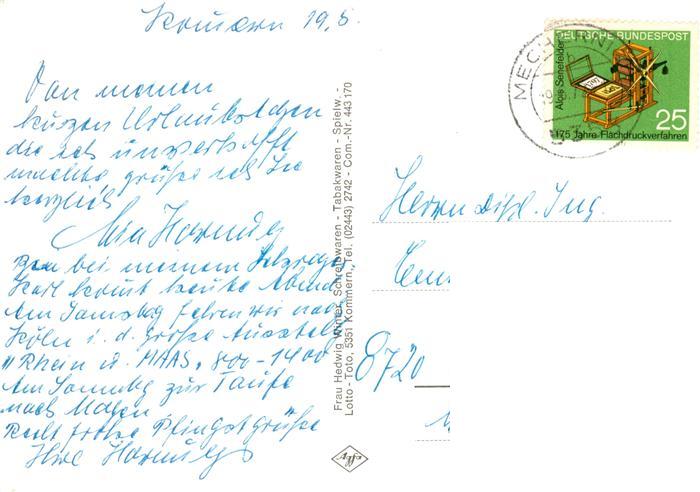 Kommern 19.5.
Von meinem
kurzen Urläubchen
die ich unverhofft
machte grüße ich Sie
herzlich
Mia Hornung
bei meinem
Karl kommt heute Abend
Am Samstag fahren wir nach
Köln i. d. große Ausstellg
"Rhein u. MAAS" 800-1400
Am Sonntag zur Taufe
nach
Recht frohe Pfingstgrüße
Ihre Hornungs
Frau Hedwig Winter, Schreibwaren - Tabakwaren - Spielw.
Lotto - Toto, 5351 Kommern, Tel. (02443) 2742 - Com.-Nr. 443 170
Agfa
MECHERNI
DEUTSCHE BUNDESPOST
Alois Senefelder
25
175 Jahre Flachdruckverfahren
Herrn Dipl. Ing.
8720